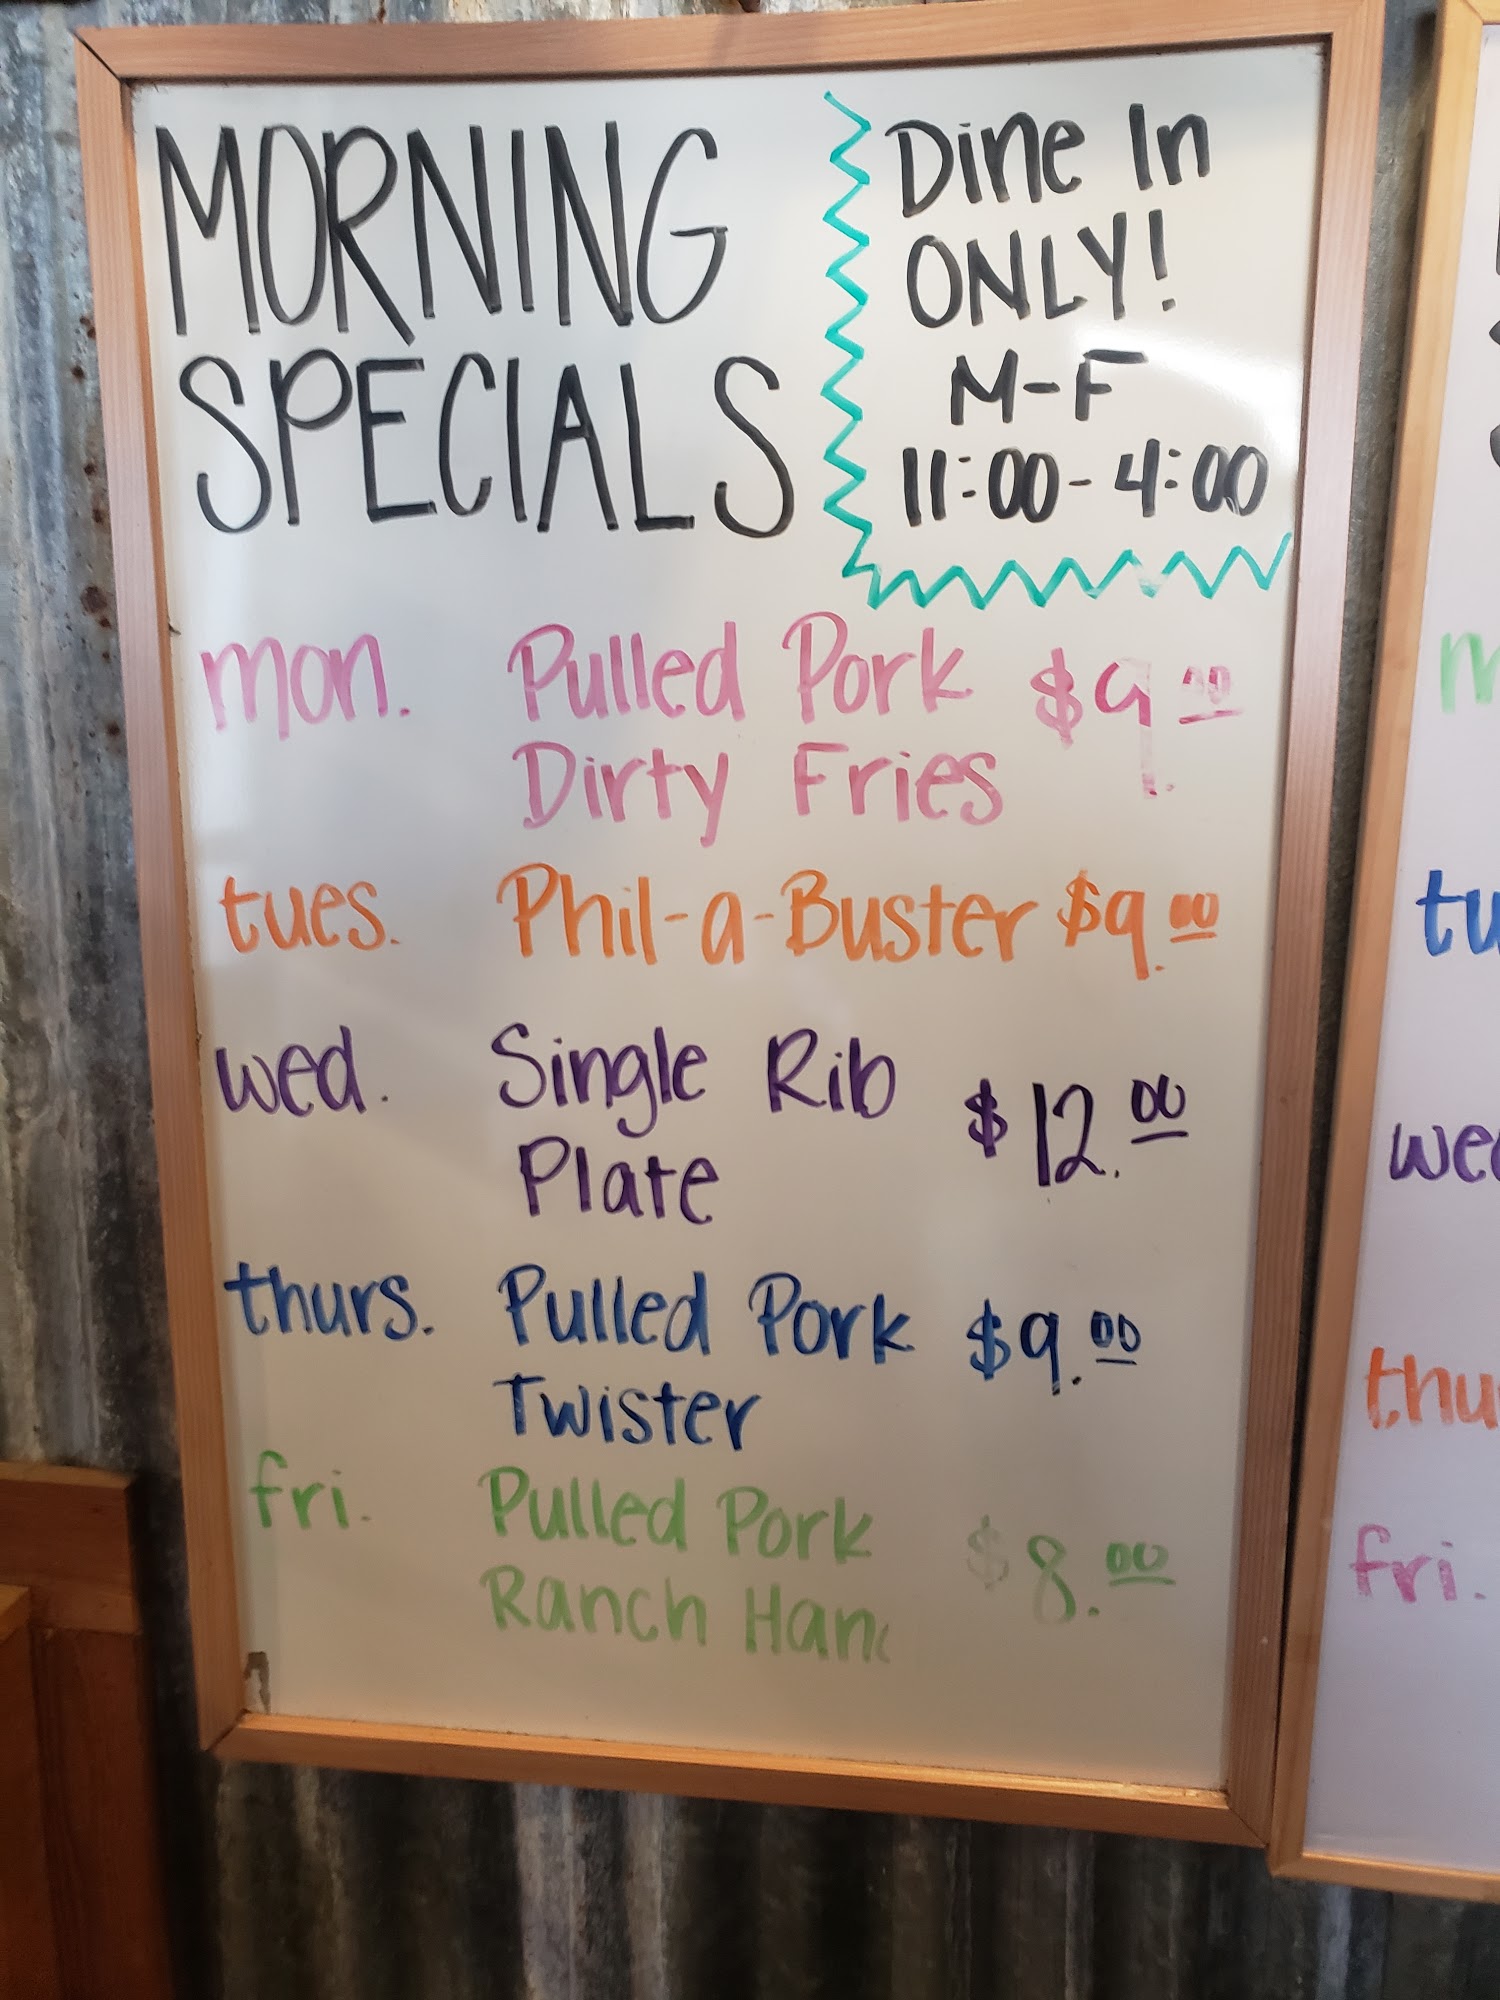 MORNING
SPECIALS
Dine In
ONLY!
M-F
11:00-4:00
mon. Pulled Pork $9.00
Dirty Fries
tues. Phil-a-Buster $9.00
wed. Single Rib $12.00
Plate
thurs. Pulled Pork $9.00
Twister
fri. Pulled Pork $8.00
Ranch Han
m
tu
wed
thu
fri.